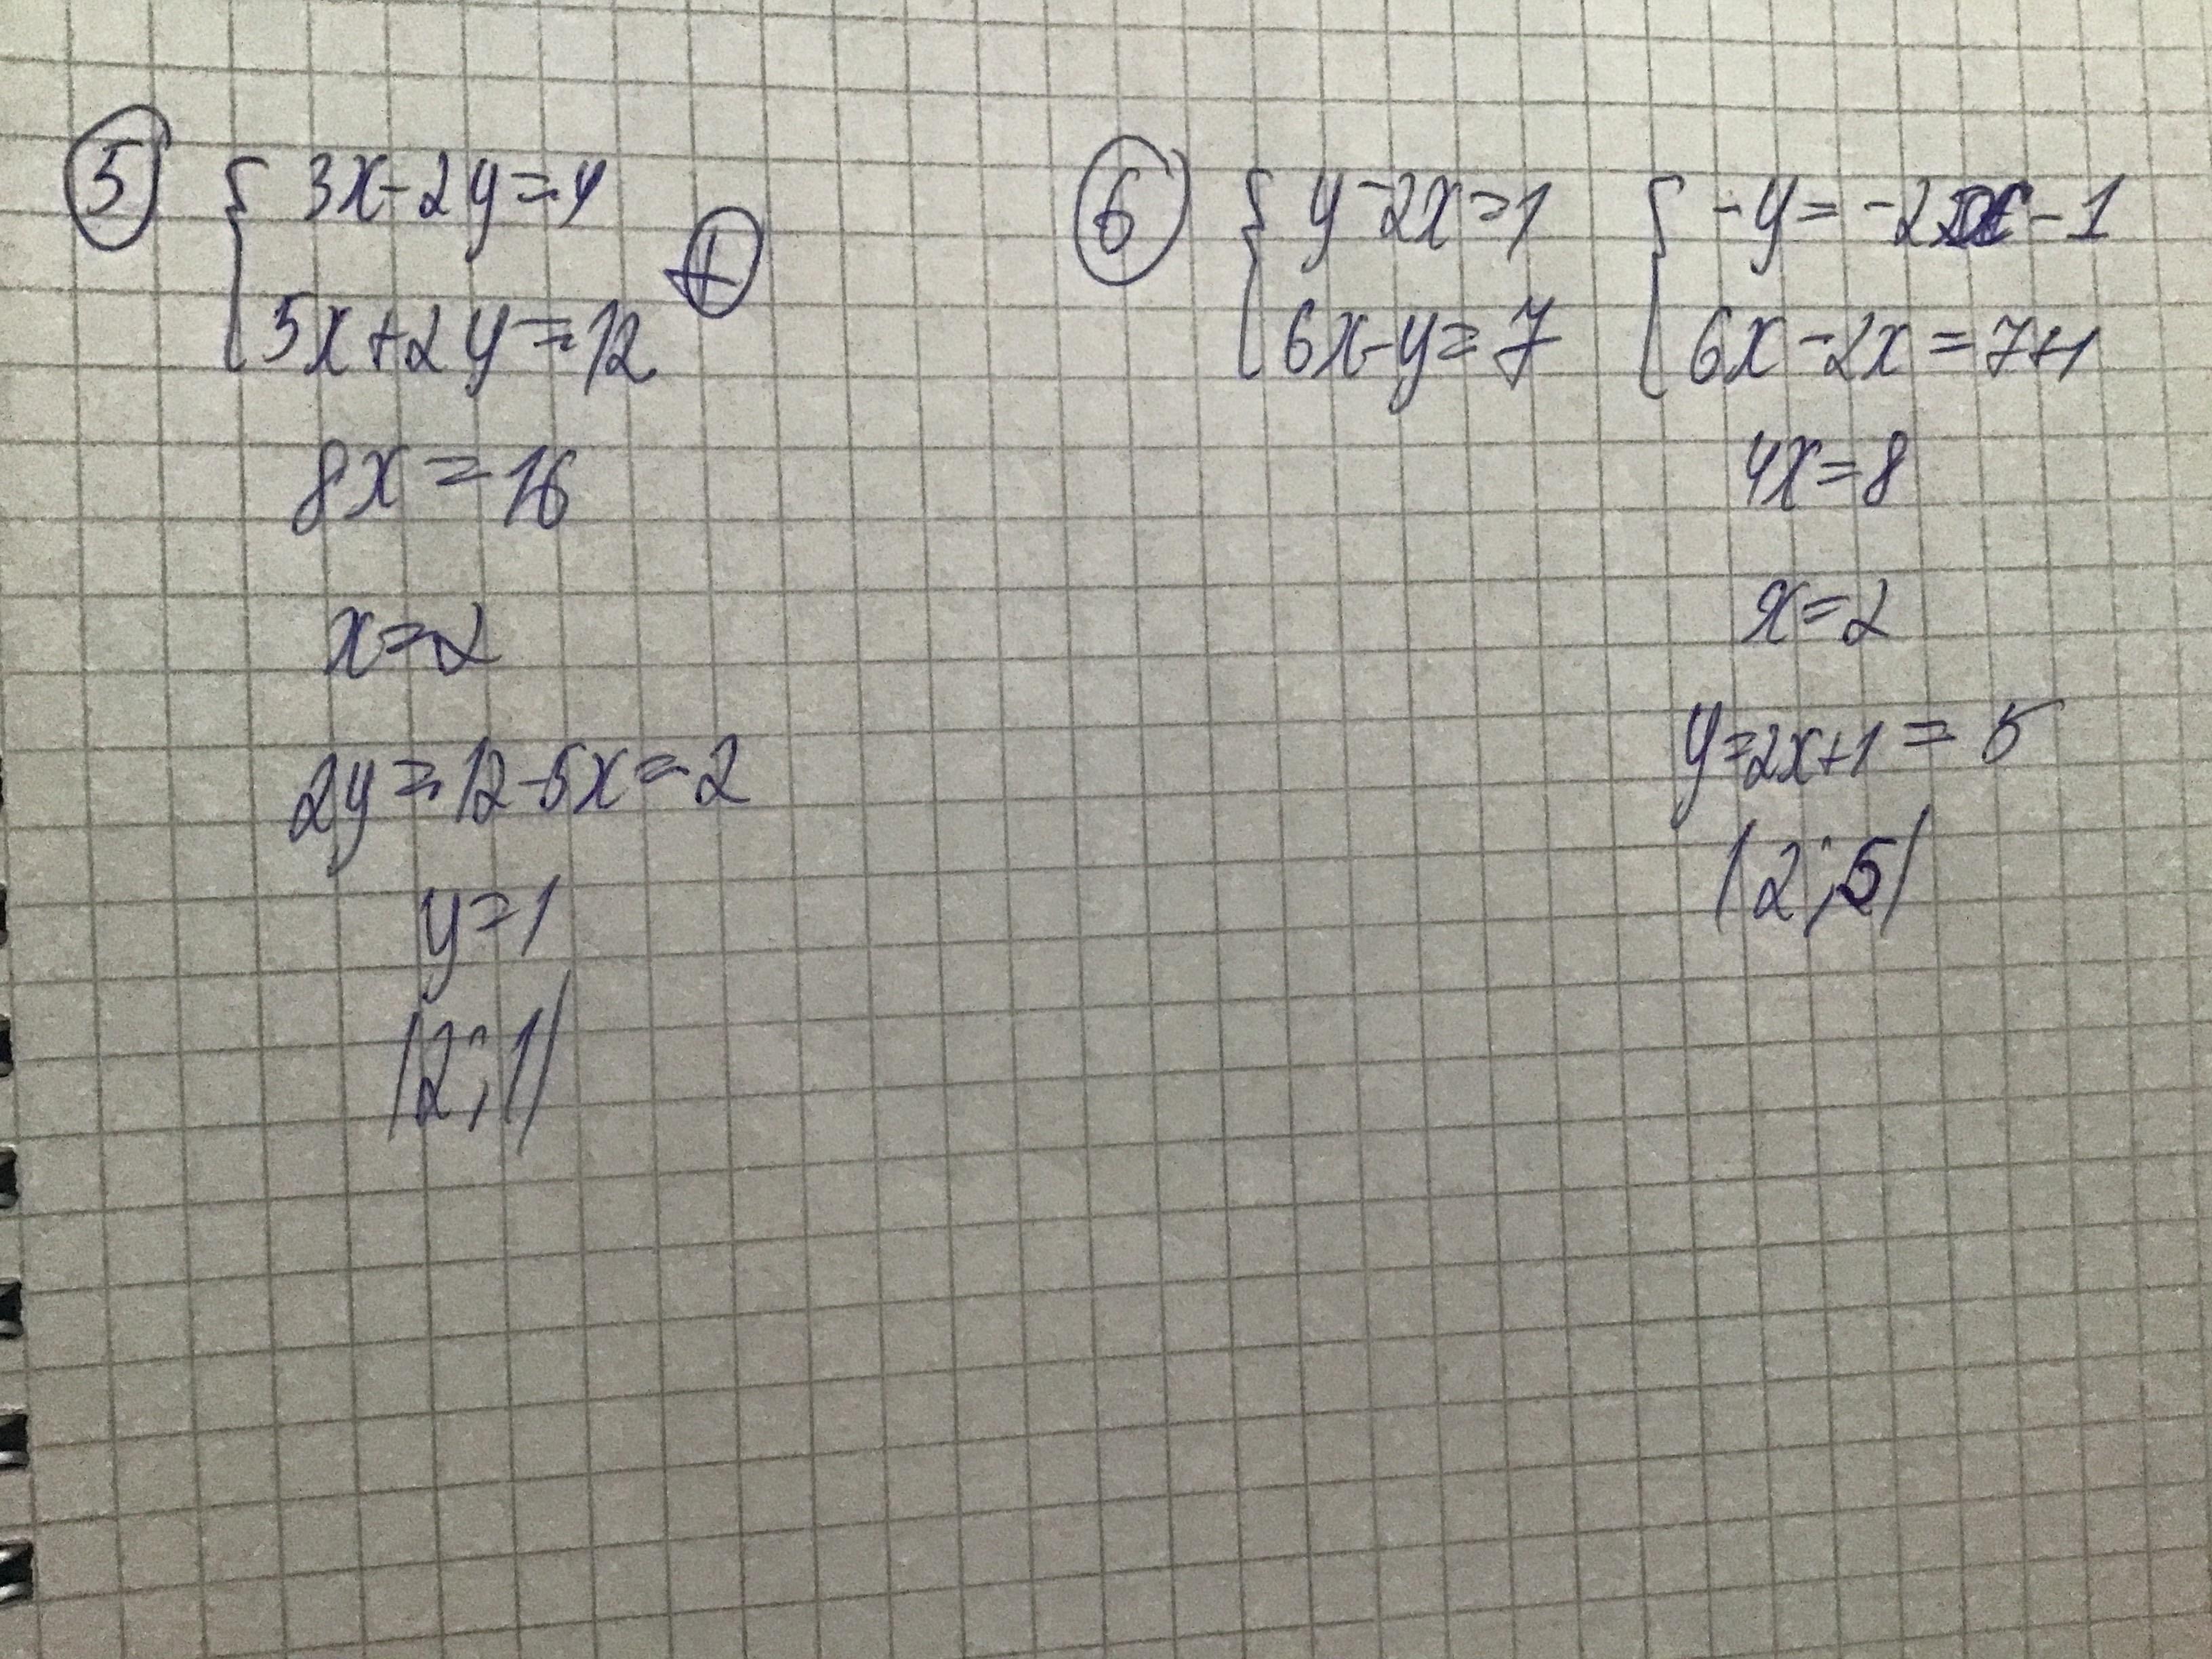 5 { 3x-2y=4
5x+2y=12 +
8x=16
x=2
2y=12-5x=2
y=1
(2;1)
6 { y-2x=1 { -y=-2x-1
6x-y=7 6x-2x=7+1
4x=8
x=2
y=2x+1=5
(2;5)